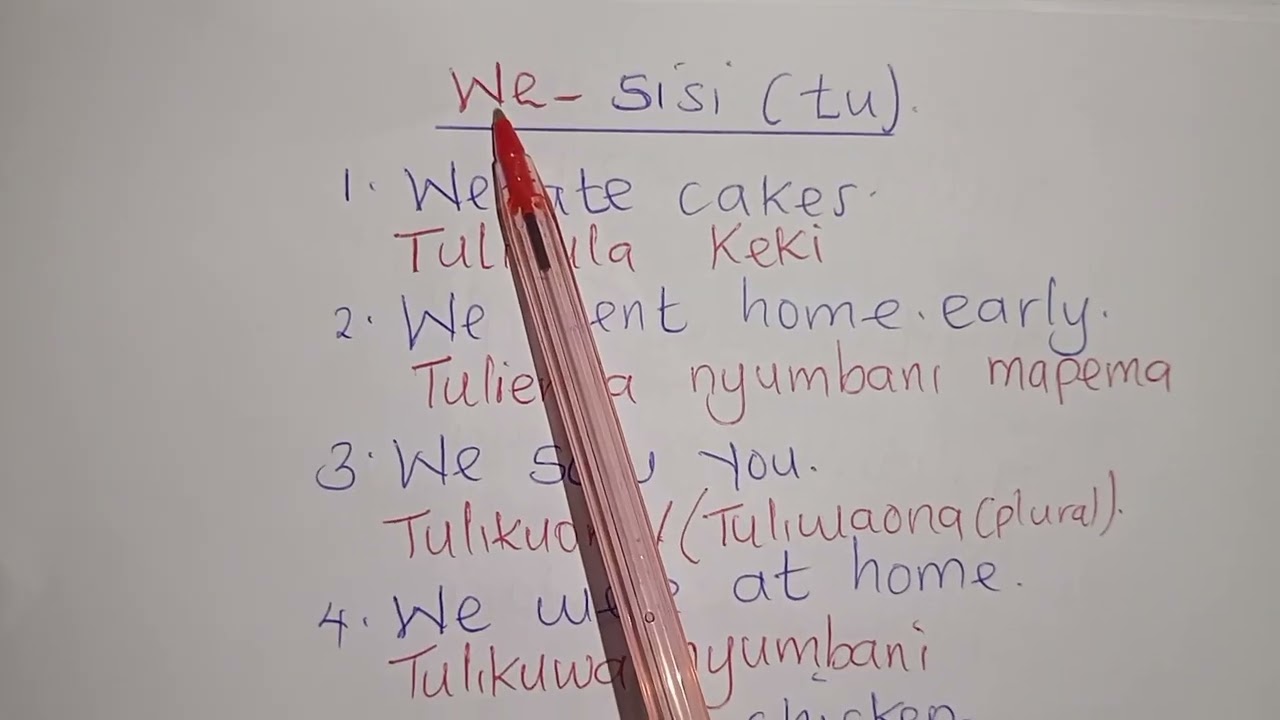 We - Sisi (tu).
1. We ate cakes.
Tulikula Keki
2. We went home.early.
Tulienda nyumbani mapema
3. We saw you.
Tulikuona/(Tuliwaona(plural).
4. We were at home.
Tulikuwa nyumbani
chicken